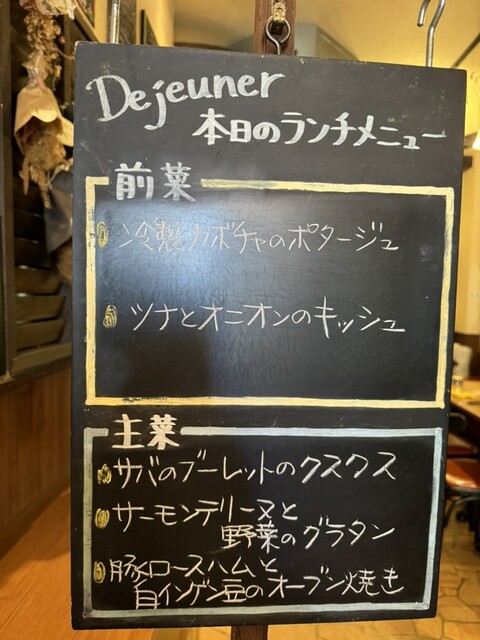 Dejeuner
本日のランチメニュー
前菜
冷製カボチャのポタージュ
ツナとオニオンのキッシュ
主菜
サバのブーレットのクスクス
サーモンデリーヌと
野菜のグラタン
豚ロースハムと
白インゲン豆のオーブン焼き